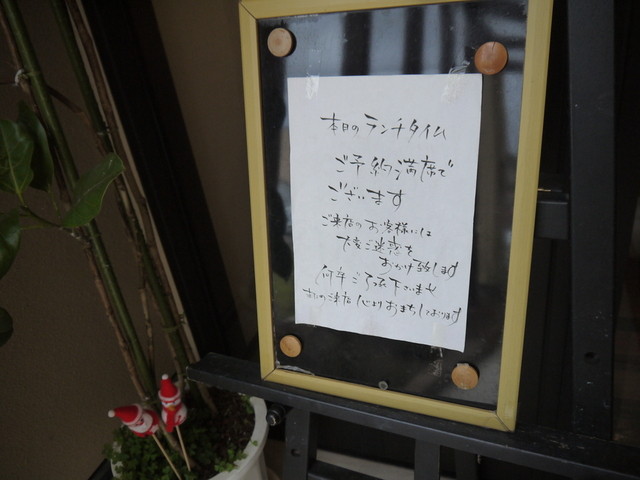 本日のランチタイム
ご予約満席で
ございます
ご来店のお客様には
大変ご迷惑を
おかけ致します
何卒ご了承下さいませ
またのご来店心よりおまちしております